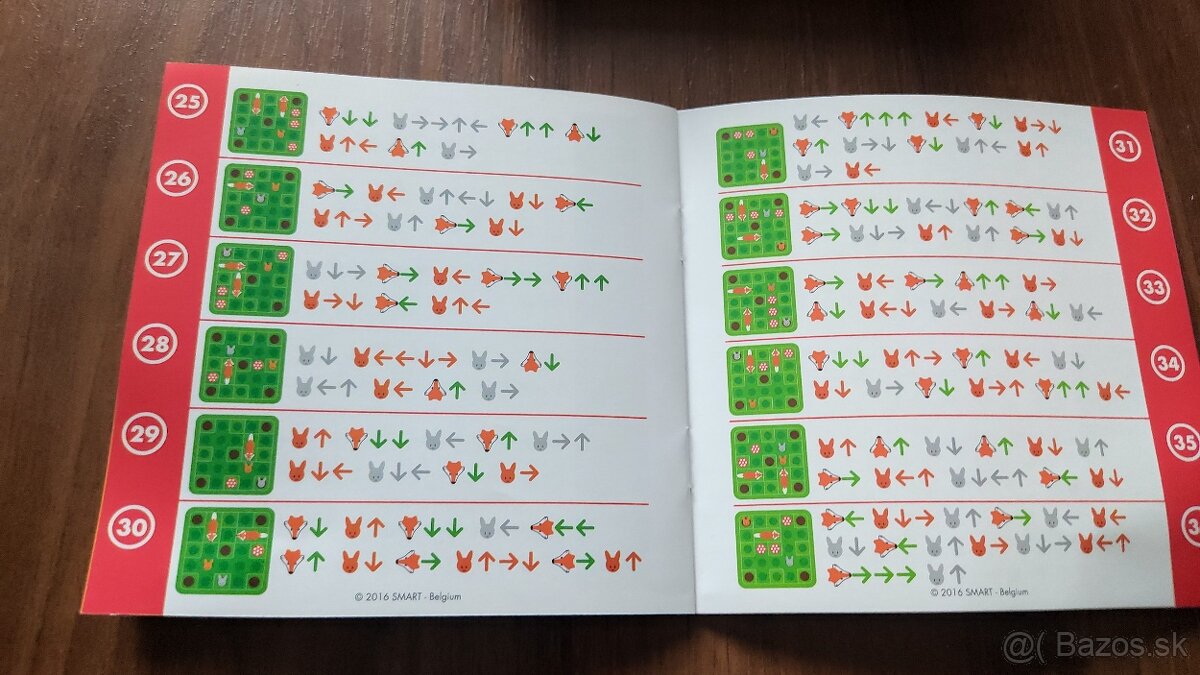 25
26
27
28
29
30
© 2016 SMART - Belgium
31
32
33
34
35
© 2016 SMART - Belgium
@( Bazos.sk